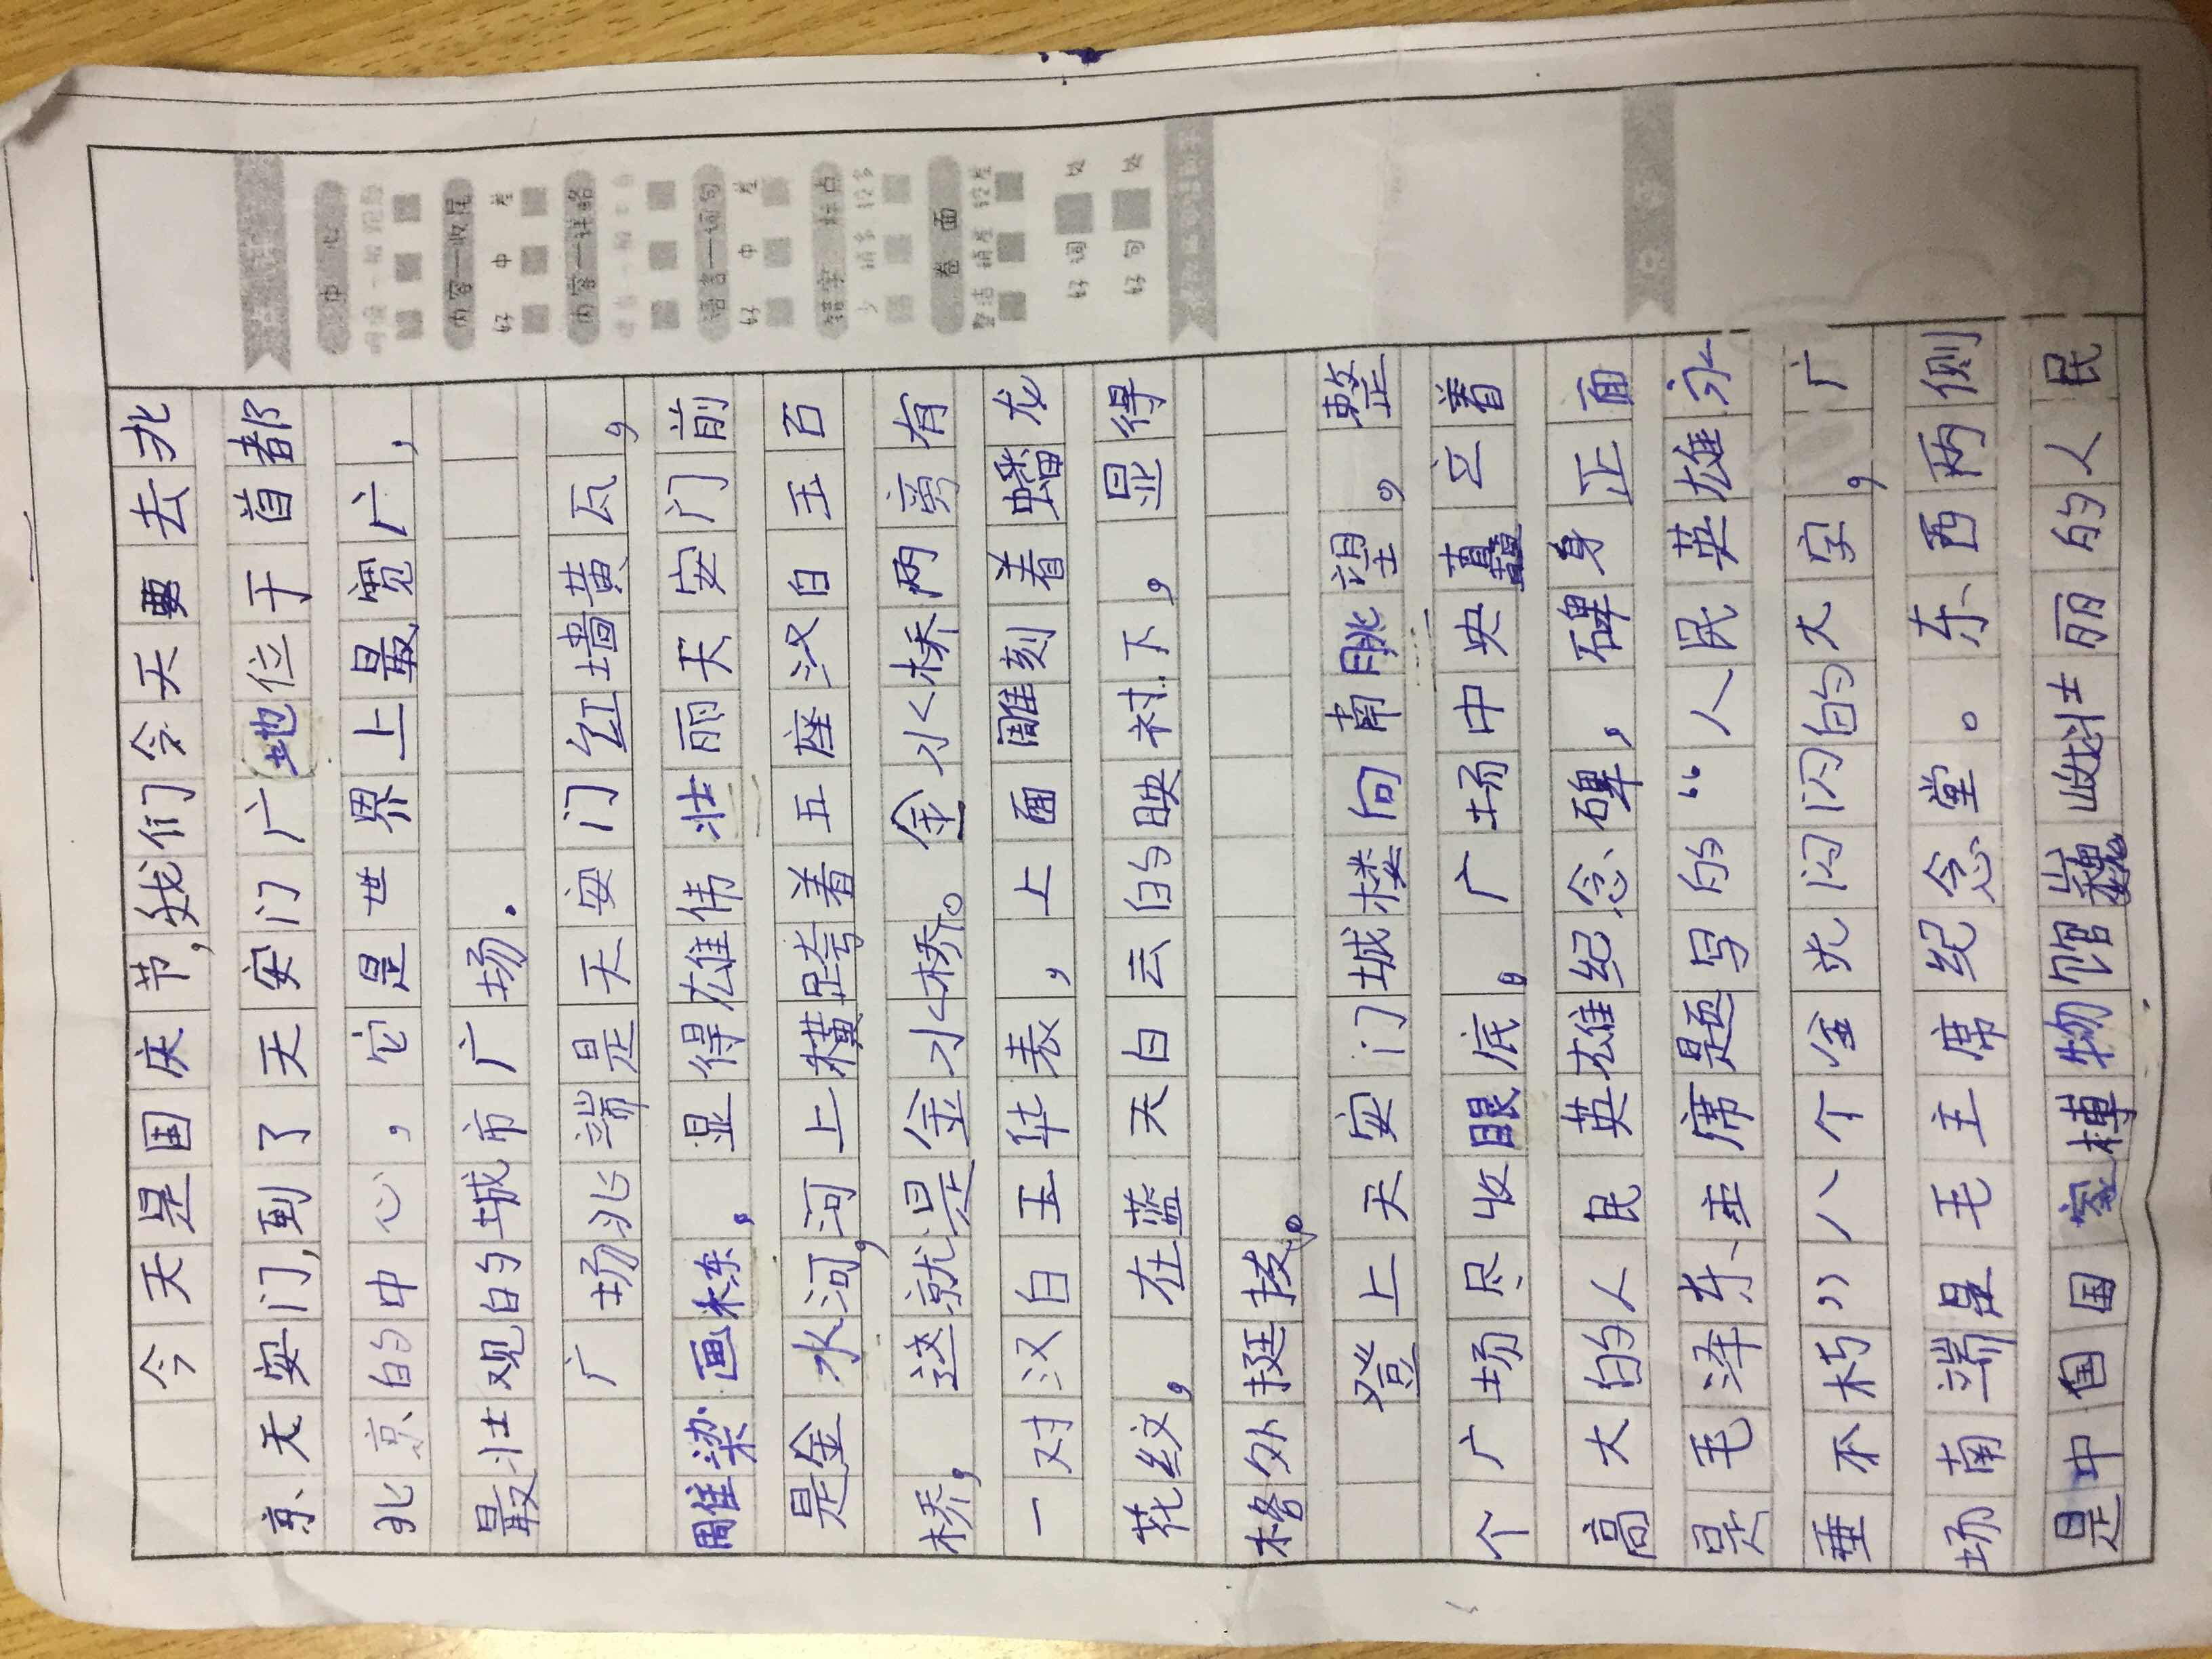 今天是国庆节,我们今天要去北
京、天安门,到了天安门广地位于首都
北京的中心,它是世界上最宽广,
最壮观的城市广场.
广场北端是天安门红墙黄瓦,
雕梁画栋,显得雄伟壮丽天安门前
是金水河,河上横跨着五座汉白玉石
桥,这就是金水桥。金水桥两旁有
一对汉白玉华表,上面雕刻着蟠龙
花纹,在蓝天白云的映衬下,显得
格外挺拔。
登上天安门城楼向南眺望。整
个广场尽收眼底。广场中央矗立着
高大的人民英雄纪念碑,碑身正面
是毛泽东、主席题写的“人民英雄永
垂不朽”八个金光闪闪的大字,广
场南端是毛主席纪念堂。东、西两侧
是中国国家博物馆巍峨壮丽的人民
中心
内容——收尾
好 中 差
内容——详略
语言——词句
好 中 差
错字 标点
少 稍多 较多
卷面
整洁 稍差 较差
好词 处
好句 处